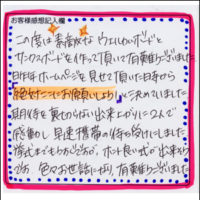 お客様感想記入欄
この度は素敵なウェルカムボードと
サンクスボードを作って頂いて有難うございました
昨年ホームページを見せて頂いた日から
絶対ここにお願いしよう！と決めていました
期待を裏切らない出来上がりに2人で
感動し早速携帯の待ち受けにしました
挙式はまだですが、ホント良い式が出来そう
です。色々お世話になり、有難うございました